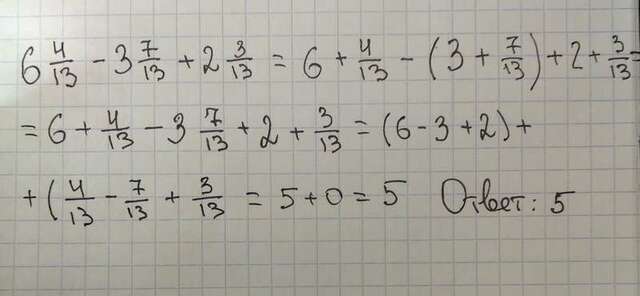 6 4/13 - 3 7/13 + 2 3/13 = 6 + 4/13 - (3 + 7/13) + 2 + 3/13 =
= 6 + 4/13 - 3 7/13 + 2 + 3/13 = (6 - 3 + 2) +
+ (4/13 - 7/13 + 3/13 = 5 + 0 = 5 Ответ: 5